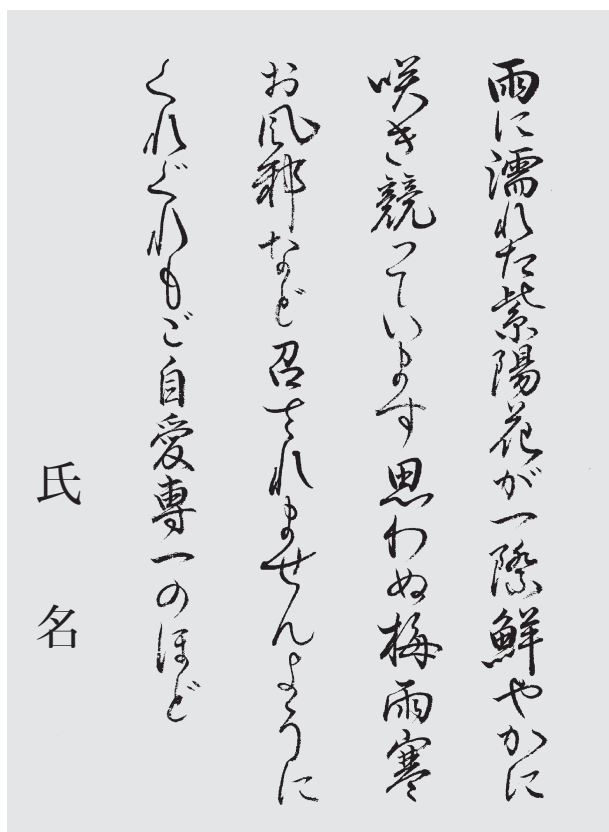 雨に濡れた紫陽花が一際鮮やかに
咲き競っています思わぬ梅雨寒
お風邪など召されませんように
くれぐれもご自愛専一のほど
氏名